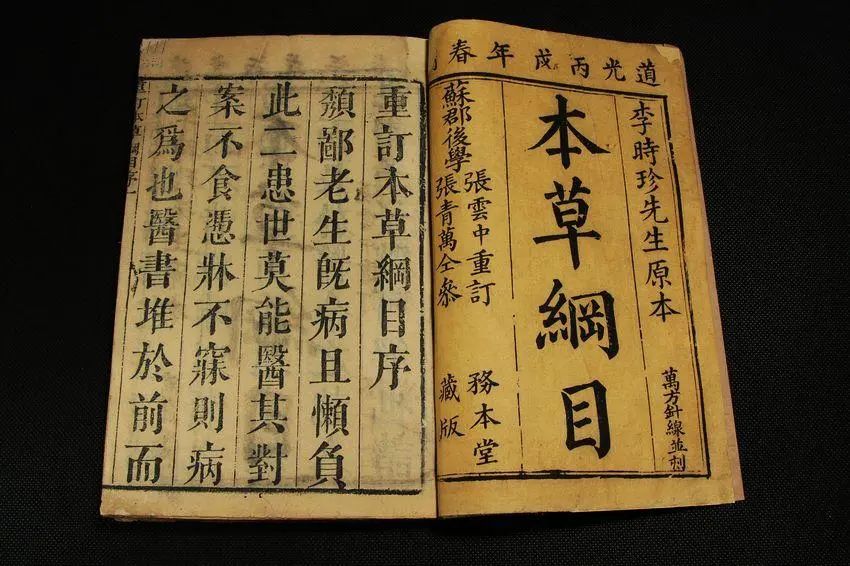 道光丙戌年春
李時珍先生原本
萬方針線並刻
本草綱目
張雲中重訂
蘇郡後學張青萬仝參
務本堂
藏版
重訂本草綱目序
頽鄙老生旣病且懶負
此二患世莫能醫其對
案不食憑牀不寐則病
之爲也醫書堆於前而